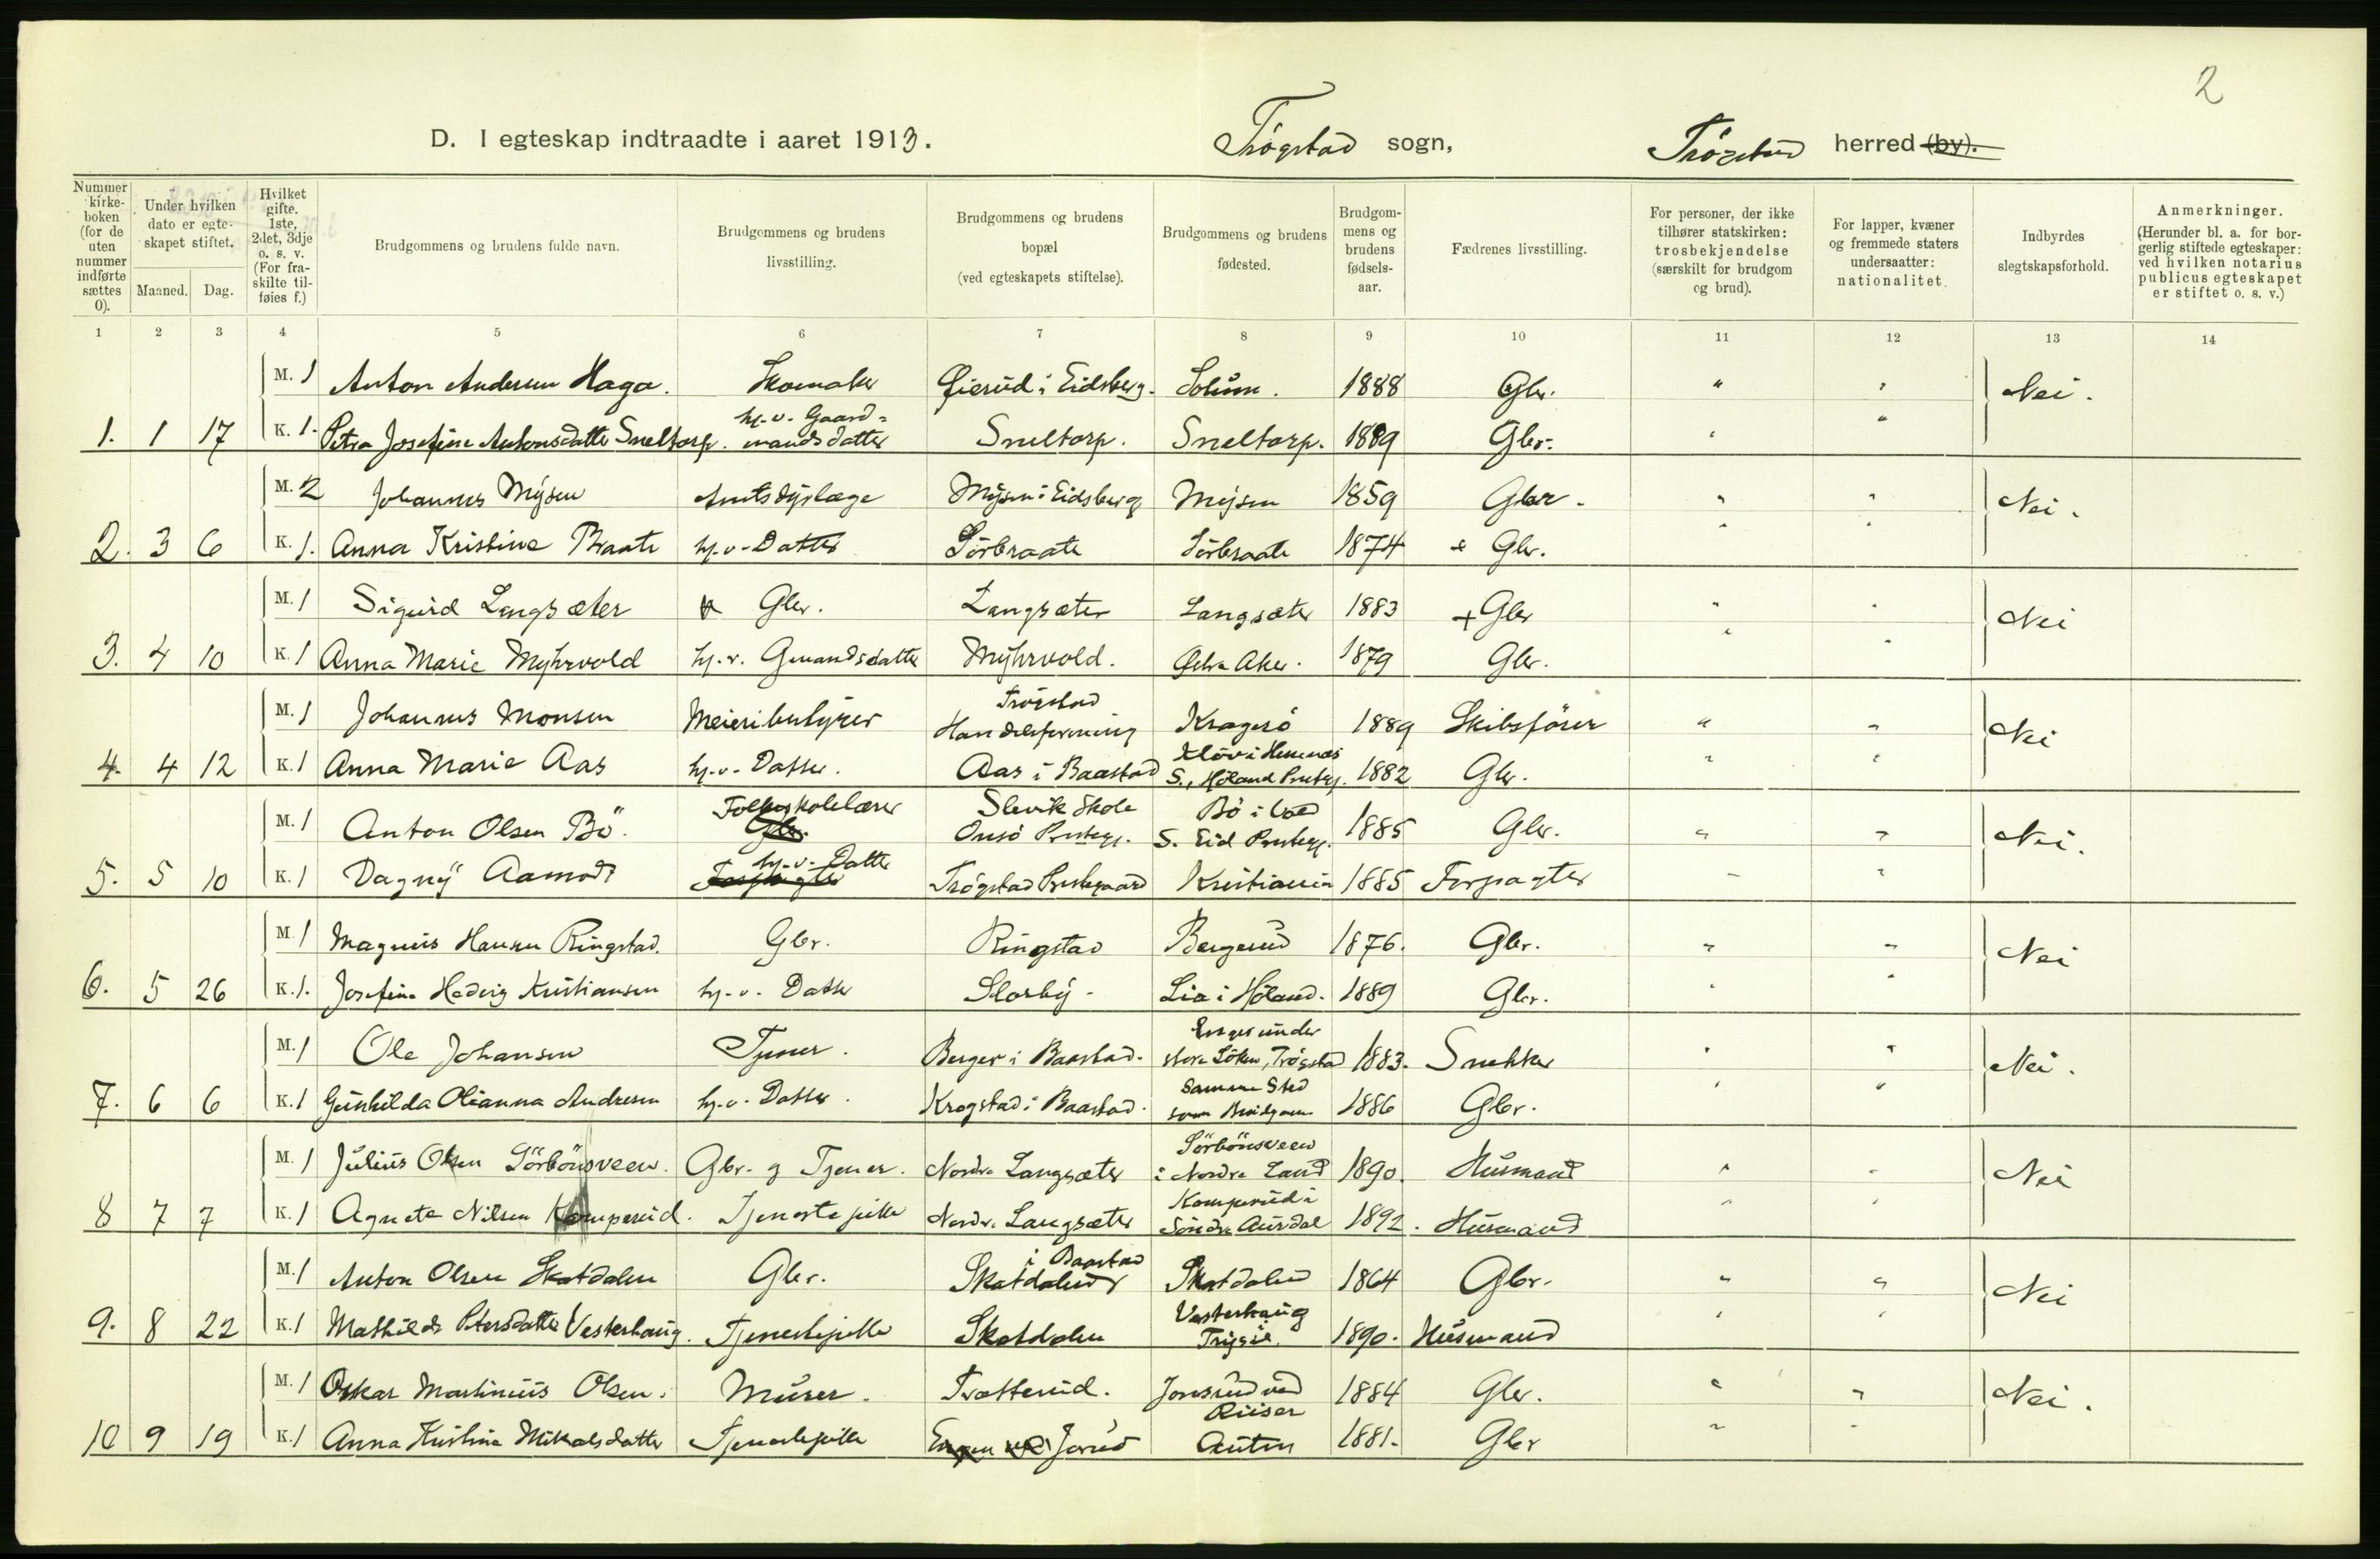 2
D. I egteskap indtraadte i aaret 1913. Trøgstad sogn, Trøgstad herred (by).
Nummer i kirkeboken (for de uten nummer indførte sættes 0).
Under hvilken dato er egteskapet stiftet. Maaned. Dag.
Hvilket gifte. 1ste, 2det, 3dje o. s. v. (For fraskilte tilføies f.)
Brudgommens og brudens fulde navn.
Brudgommens og brudens livsstilling.
Brudgommens og brudens bopæl (ved egteskapets stiftelse).
Brudgommens og brudens fødested.
Brudgommens og brudens fødselsaar.
Fædrenes livsstilling.
For personer, der ikke tilhører statskirken: trosbekjendelse (særskilt for brudgom og brud).
For lapper, kvæner og fremmede staters undersaatter: nationalitet.
Indbyrdes slegtskapsforhold.
Anmerkninger. (Herunder bl. a. for borgerlig stiftede egteskaper: ved hvilken notarius publicus egteskapet er stiftet o. s. v.)
1 2 3 4 5 6 7 8 9 10 11 12 13 14
M. 1 Anton Andersen Haga. Skomaker Øierud i Eidsberg. Solum. 1888 Gbr. " " Nei.
1. 1 17 K. 1. Petra Josefine Antonsdatter Sneltorp. hj.v. Gaardmandsdatter Sneltorp. Sneltorp. 1889 Gbr. " "
M. 2 Johannes Mysen Amtsdyrlæge Mysen i Eidsberg Mysen 1859 Gbr. " " Nei.
2. 3 6 K. 1. Anna Kristine Braate hj.v. Datter Sörbraate Sörbraate 1874 + Gbr. " "
M. 1 Sigurd Langsæter Gbr. Langsæter Langsæter 1883 + Gbr " " Nei
3. 4 10 K. 1 Anna Marie Myhrvold hj.v. Gmandsdatter Myhrvold. Østre Aker. 1879 Gbr. " "
M. 1 Johannes Monsen Meieribestyrer Trögstad Handelsforening Kragerö 1889 Skibsförer " " Nei
4. 4 12 K. 1 Anna Marie Aas hj.v. Datter. Aas i Baastad S., Höland Prestegj. 1882 Gbr. " "
M. 1 Anton Olsen Bö. Folkeskolelærer Gbr. Slevik Skole Onsö Prestegj. Bö i S. Eid Prestegj. 1885 Gbr. " " Nei.
5. 5 10 K. 1 Dagny Aamodt hj.v. Datter Forpagter Trögstad Prestegaard Kristiania 1885 Forpagter " "
M. 1 Magnus Hansen Ringstad. Gbr. Ringstad Bergerud 1876. Gbr. " " Nei
6. 5 26 K. 1. Josefine Hedvig Kristiansen hj.v. Datter Slorby Lia i Höland. 1889 Gbr. " "
M. 1 Ole Johansen Tjener. Berger i Baastad. under store Löken, Trögstad 1883. Snekker " " Nei.
7. 6 6 K. 1 Gunhilda Olianna Andresen hj.v. Datter. Krogstad i Baastad. Samme Sted som Brudgom 1886 Gbr. " "
M. 1 Julius Olsen Sörbönsveen. Gbr. og Tjener. Nordre Langsæter Sörbönsveen i Nordre Land 1890. Husmand " " Nei
8 7 7 K. 1 Agnete Nilsen Komperud. Tjenestepike Nordr. Langsæter Komperud i Söndre Aurdal 1892. Husmand " "
M. 1 Anton Olsen Skatdalen Gbr. Skatdalen i Baastad Skatdalen 1864 Gbr. " " Nei
9. 8 22 K. 1 Mathilde Petersdatter Vesterhaug. Tjenestepike Skatdalen Vesterhaug i Trysil. 1890. Husmand " "
M. 1 Oskar Martinius Olsen. Murer. Trætterud. Jonsrud ved Riiser 1884 Gbr. " " Nei.
10 9 19 K. 1 Anna Kristine Mikalsdatter Tjenestepike Jorud Auten 1881. Gbr " "